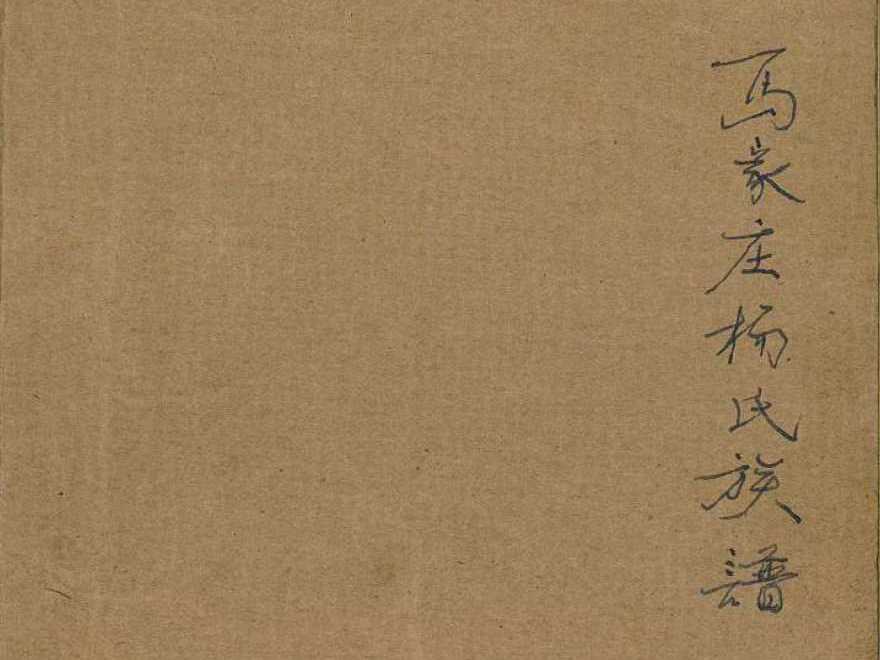 马家庄杨氏族譜